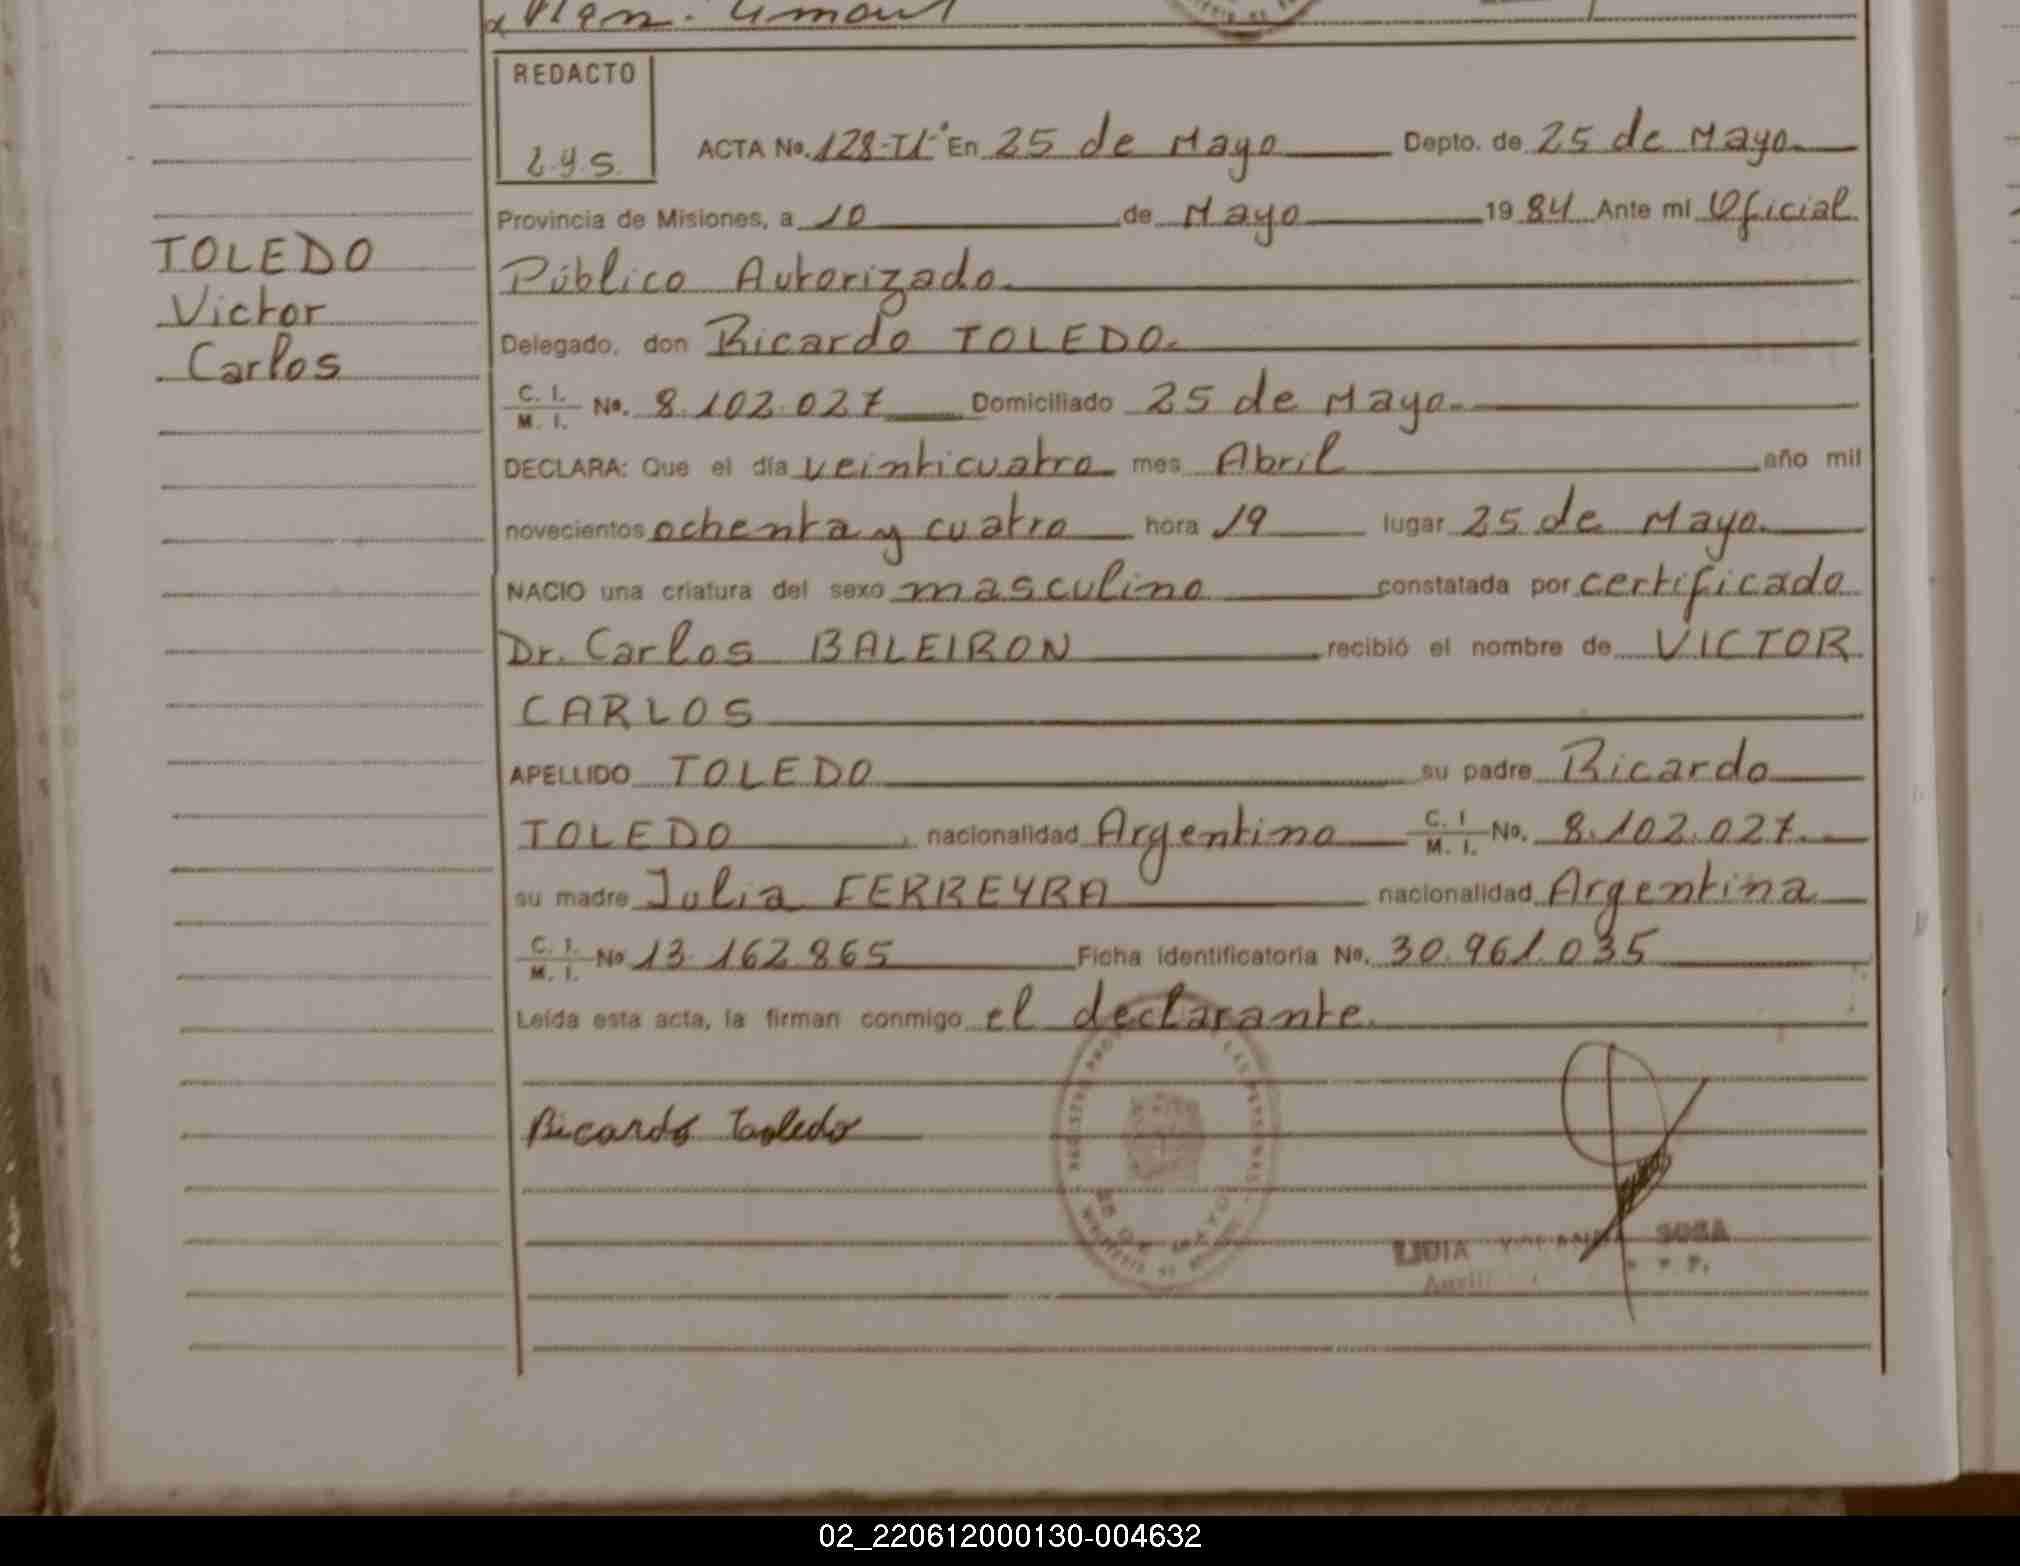 REDACTO
L.y.S.
ACTA No. 128-TI° En 25 de Mayo Depto. de 25 de Mayo.
Provincia de Misiones, a 10 de Mayo 1984 Ante mi Oficial
Público Autorizado.
TOLEDO
Victor
Carlos
Delegado, don Ricardo TOLEDO.
C. I. M. I. No. 8.102.027 Domiciliado 25 de Mayo.
DECLARA: Que el día veinticuatro mes Abril año mil
novecientos ochenta y cuatro hora 19 lugar 25 de Mayo.
NACIO una criatura del sexo masculino constatada por certificado
Dr. Carlos BALEIRON recibió el nombre de VICTOR
CARLOS
APELLIDO TOLEDO su padre Ricardo
TOLEDO, nacionalidad Argentino C. I. M. I. No. 8.102.027.
su madre Julia FERREYRA nacionalidad Argentina
C. I. M. I. No 13.162.865 Ficha identificatoria No. 30.961.035
Leída esta acta, la firman conmigo el declarante.
Ricardo Toledo
25 DE MAYO
LIDIA SOSA
02_220612000130-004632